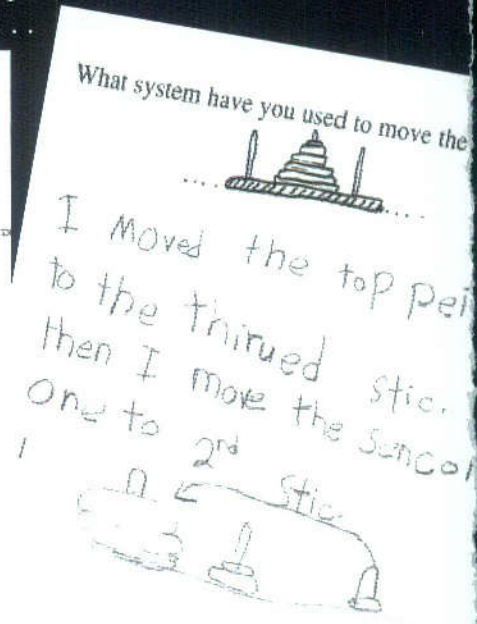 What system have you used to move the
I moved the top pei
to the thirued stic.
then I move the sencol
one to 2nd stic.